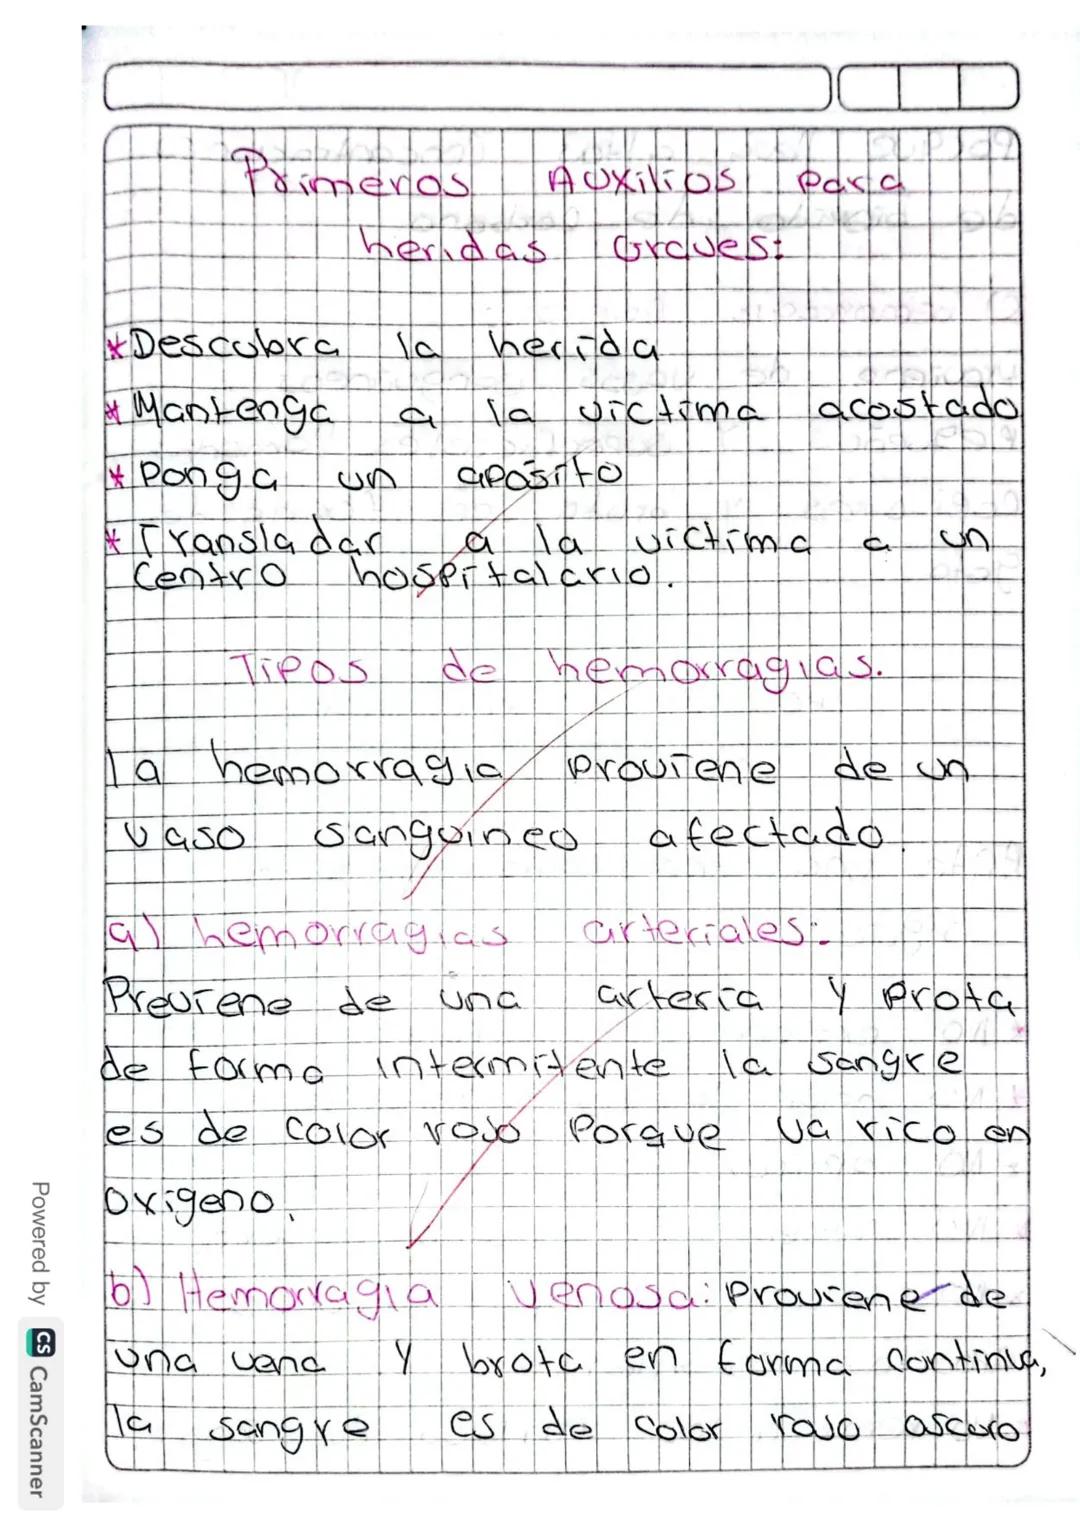 Primeros Auxilios para
heridas Graves:
*Descubra la herida
*Mantenga a la victima acostado
*Ponga un aposito
*Transladar a la victima a un
Centro hospitalario.
Tipos de hemorragias.
la hemorragia proviene de un
vaso sanguineo afectado.
a) hemorragias arteriales:
Previene de una arteria y prota
de forma intermitente la sangre
es de color rojo porque va rico en
oxigeno.
b) Hemorragia venosa: proviene de
una vena y brota en forma continua,
la sangre es de color rojo oscuro
Powered by CS CamScanner